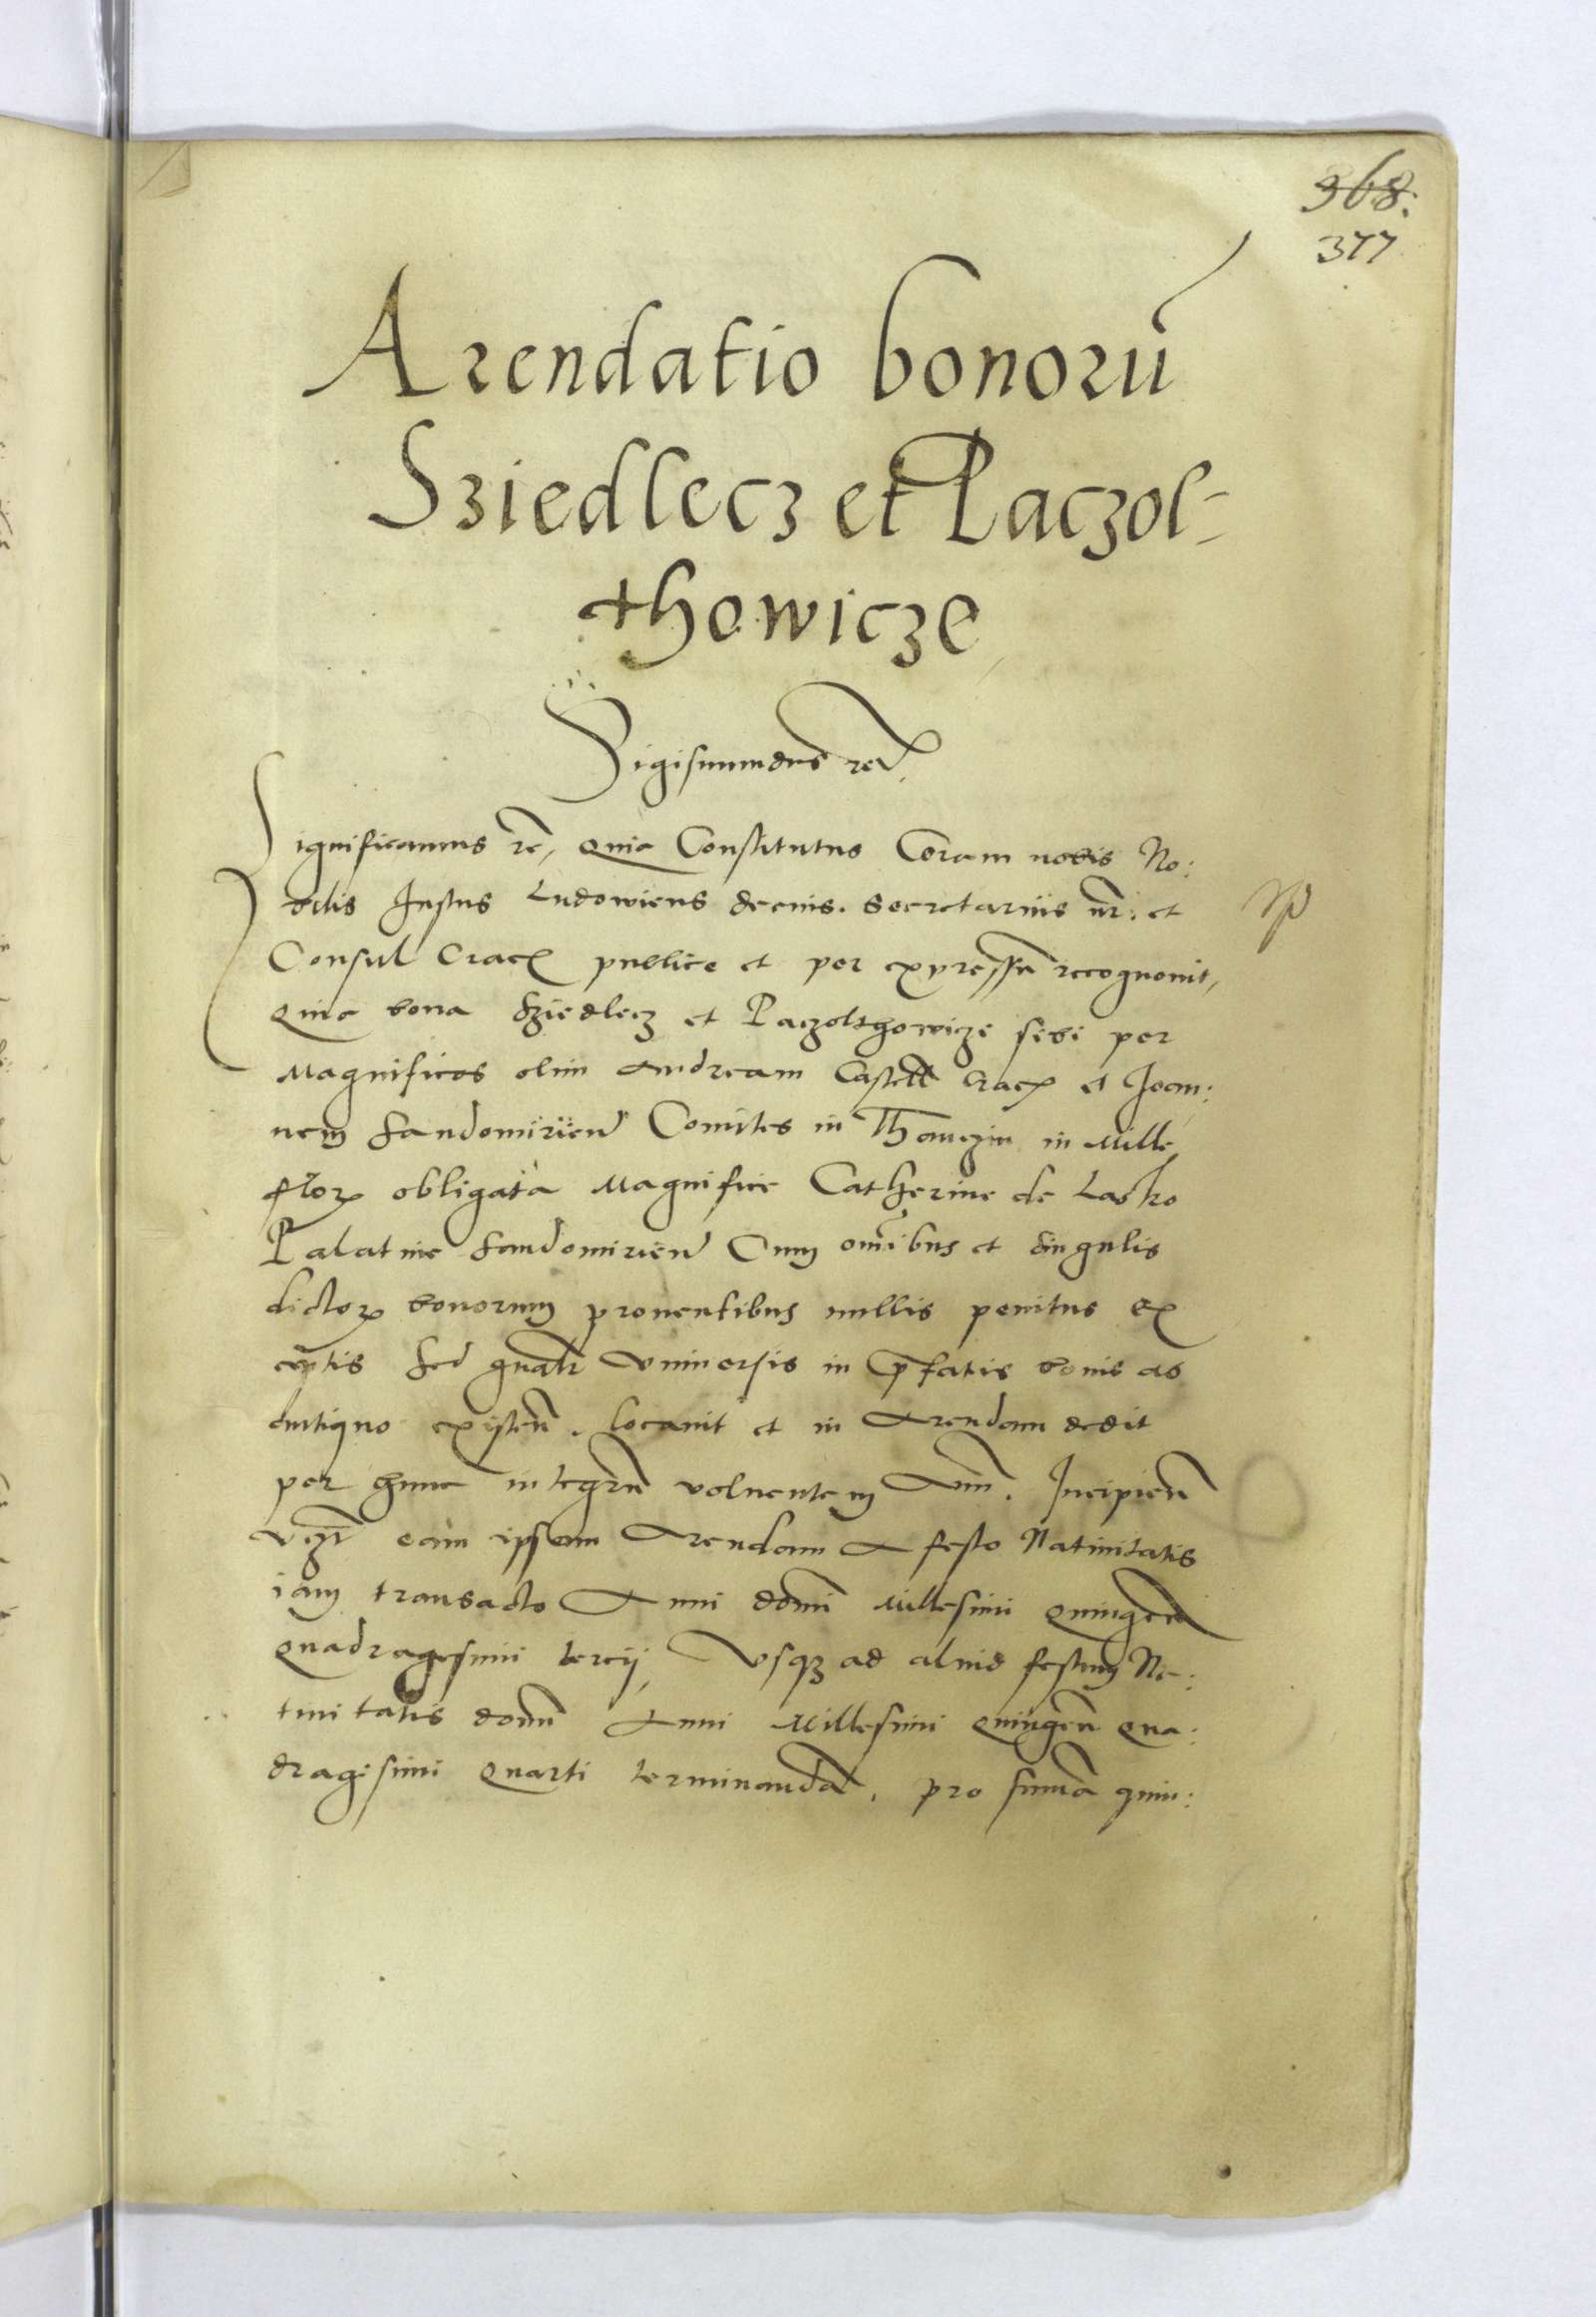 368:
377
Arendatio bonorū
Sziedlecz et Paczol-
thowicze
Sigismundus rex
Significamus etc, Quia Constitutus Coram nobis No:
bilis Justus Ludowicus decius. Secretarius nr̃: et
Consul Crac̃ publice et per expressũ recognovit,
Quia bona Sziedlecz et Paczolthowicze sibi per
Magnificos olim Andream Castell̃ Crac̃ et Joan:
nem Sandomirieñ Comites in Thanczin in Mille
flor̃ obligata Magnifice Catherine de Lasko
Palatine Sandomirieñ Cum om̃ibus et singulis
dictor̃ bonorum proventibus nullis penitus ex
ceptis sed gñalr̃ Universis in p̃fatis bonis ab
antiquo existeñ. locavit et in Arendam dedit
per hunc integrũ volventem Anñ. Incipieñ
vezt̃ eam ipsam Arendam A festo Nativitatis
iam transacto Anni domĩ Millesimi Quingeñ
Quadragesimi tercij, Usqz ad aliud festum Na:
tivitatis domĩ Anni Millesimi Quingeñ Qua:
dragesimi Quarti terminandã. pro sum̃a quin: